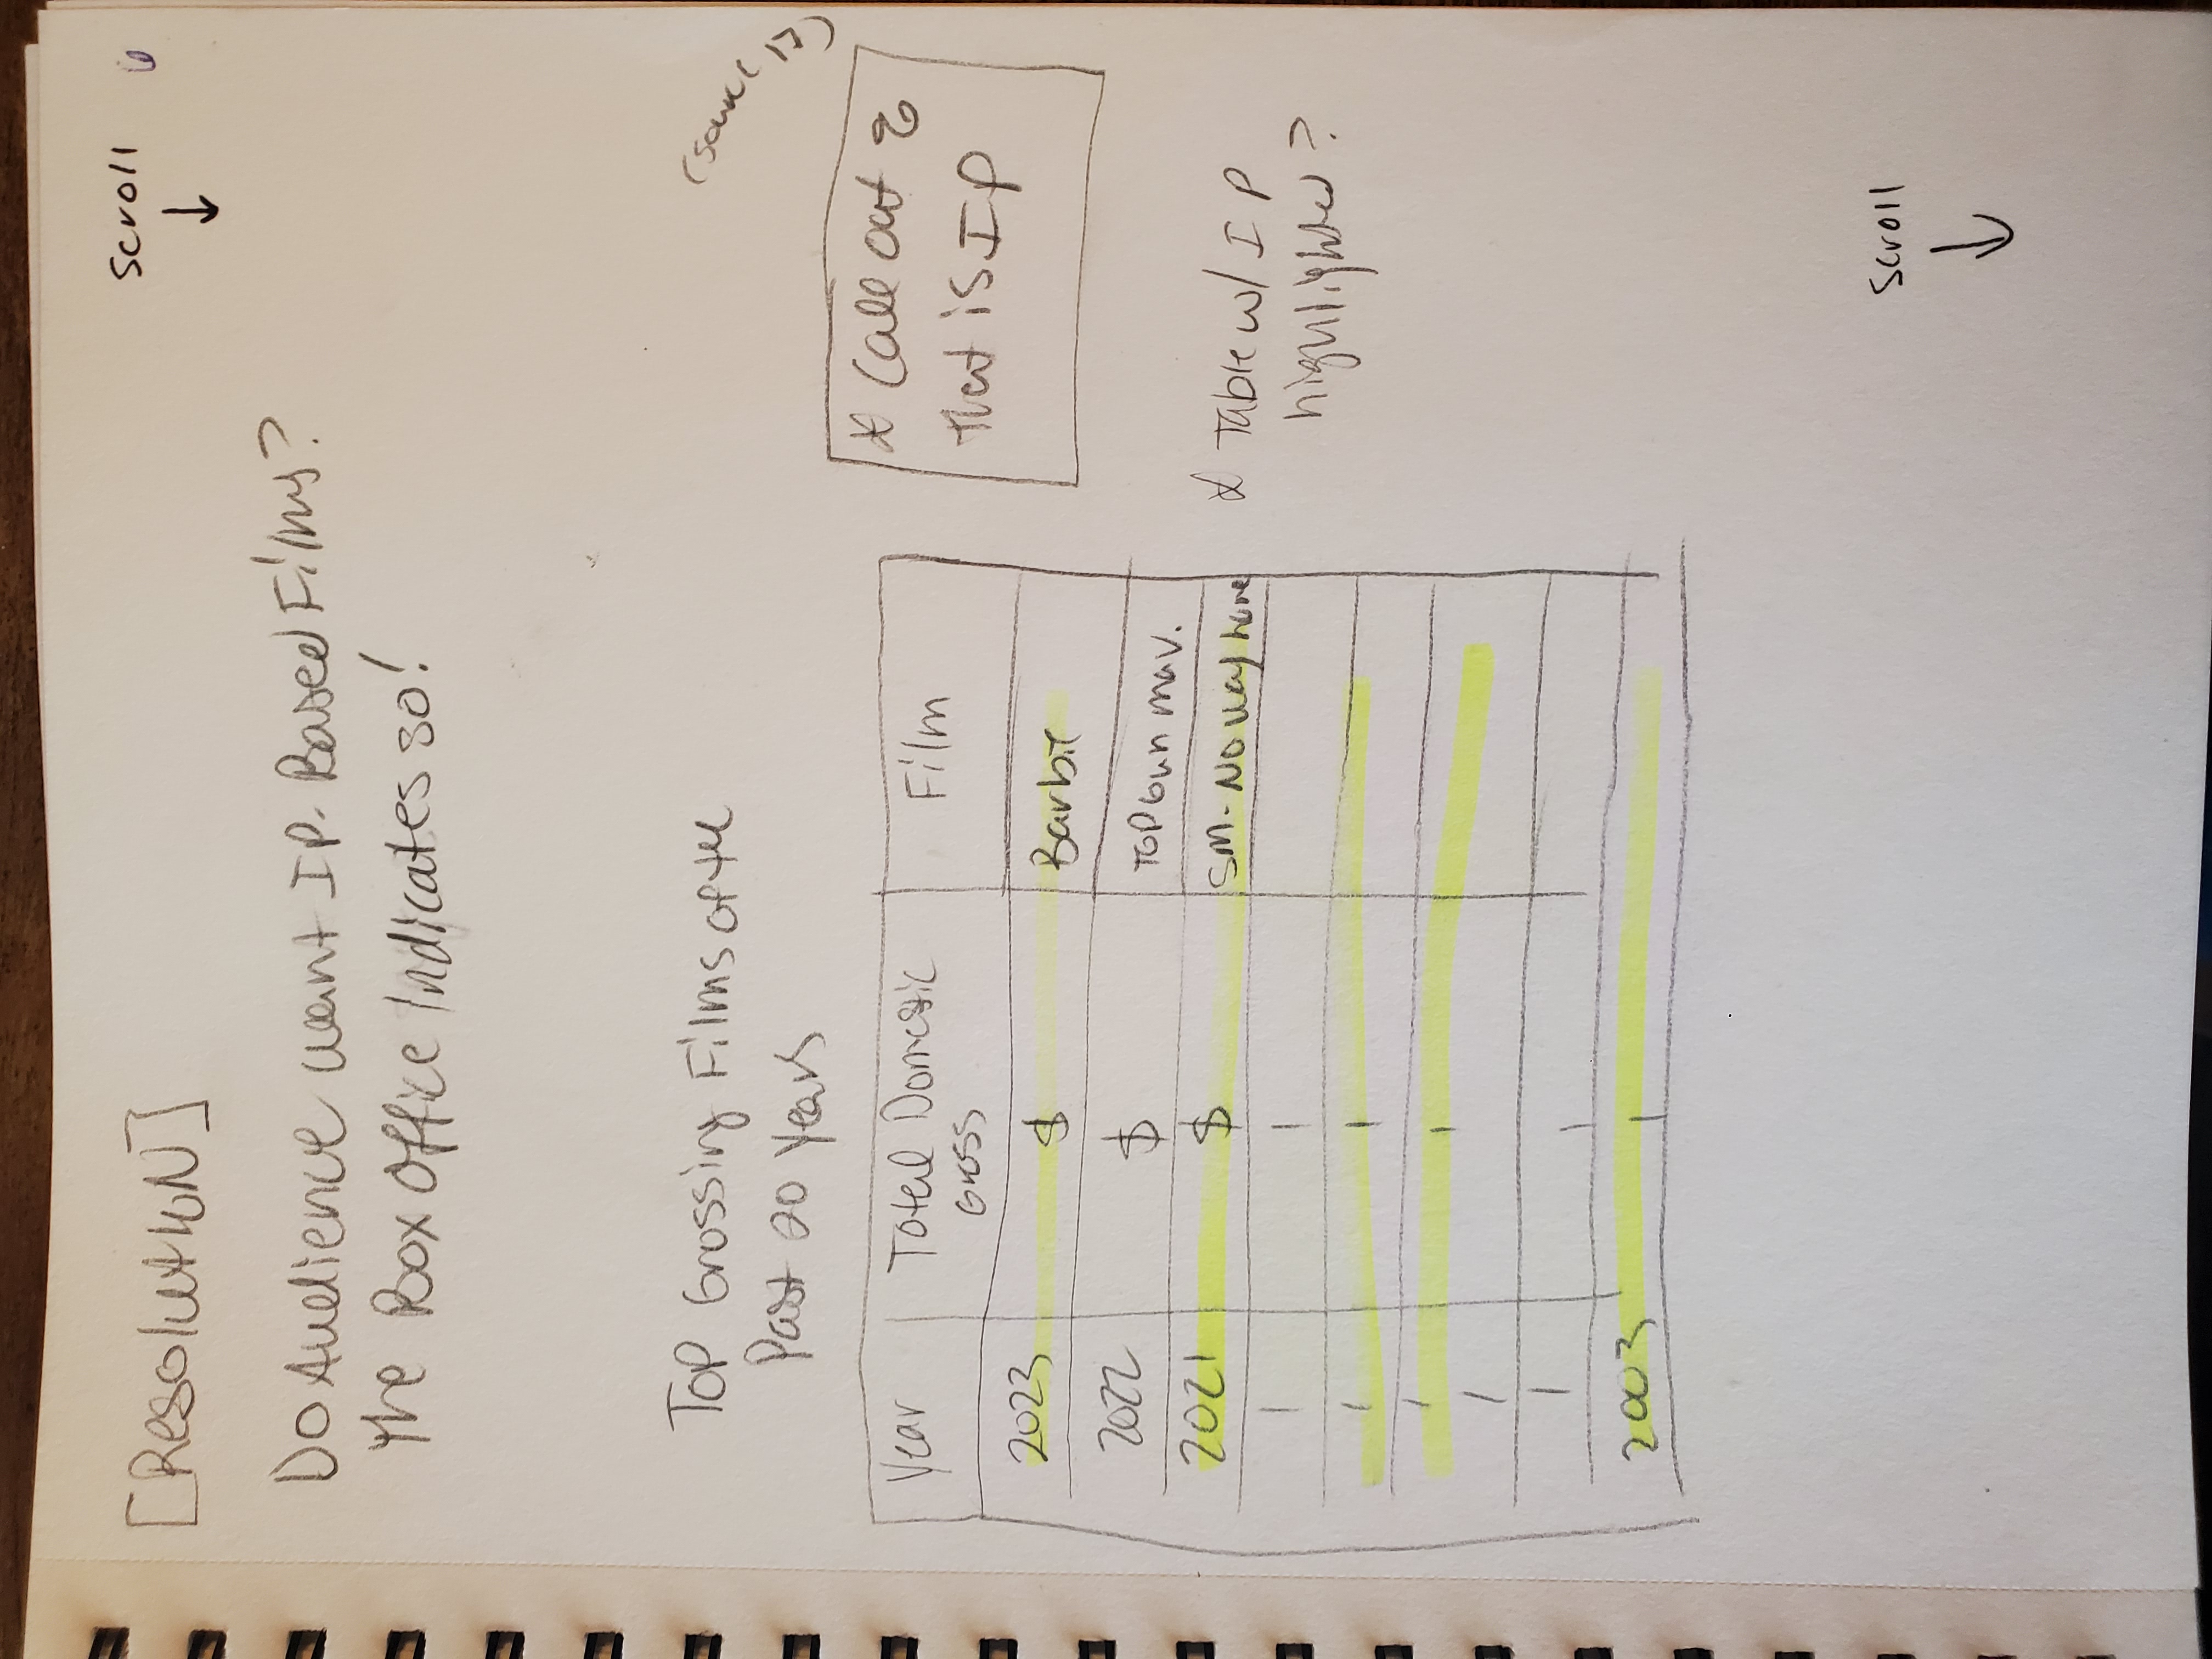 Scroll
6
↓
[Resolution]
Do Audience want IP-Based Films?
The Box Office Indicates so!
Top Grossing Films of the
Past 20 Years
(Source 17)
* Call out %
that is IP
Year Total Domestic Gross Film
2023 $ Barbie
2022 $ Top Gun Mav.
2021 $ SM- No Way home
2003
* Table w/ IP
highlighted?
Scroll
↓